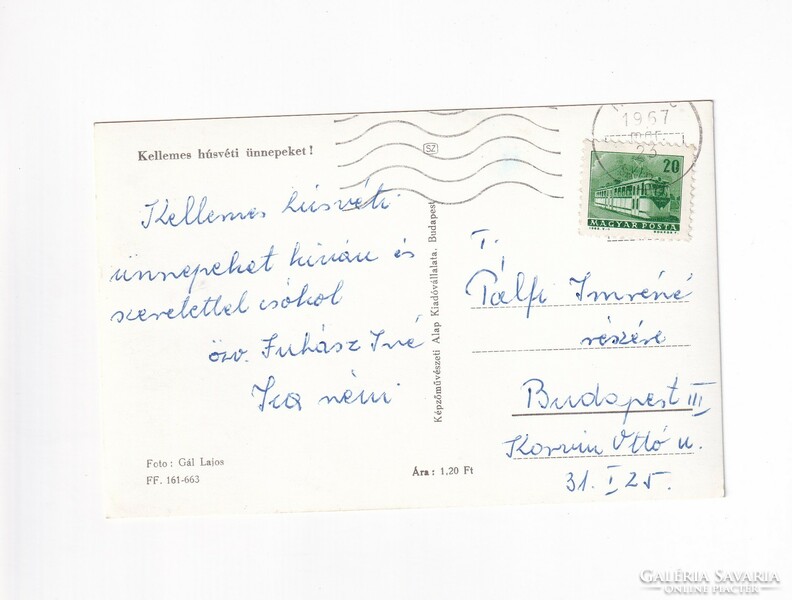 Kellemes húsvéti ünnepeket!
Kellemes húsvéti
ünnepeket kíván és
szeretettel csókol
özv. Juhász Iné
Ica néni
Foto: Gál Lajos
FF. 161-663
Ára: 1,20 Ft
Képzőművészeti Alap Kiadóvállalata, Budapest
SZ
1967
23
20
MAGYAR POSTA
T.
Pálfi Imréné
részére
Budapest III
Korvin Ottó u.
31. I 25.
GALÉRIA SAVARIA
ONLINE PIACTÉR